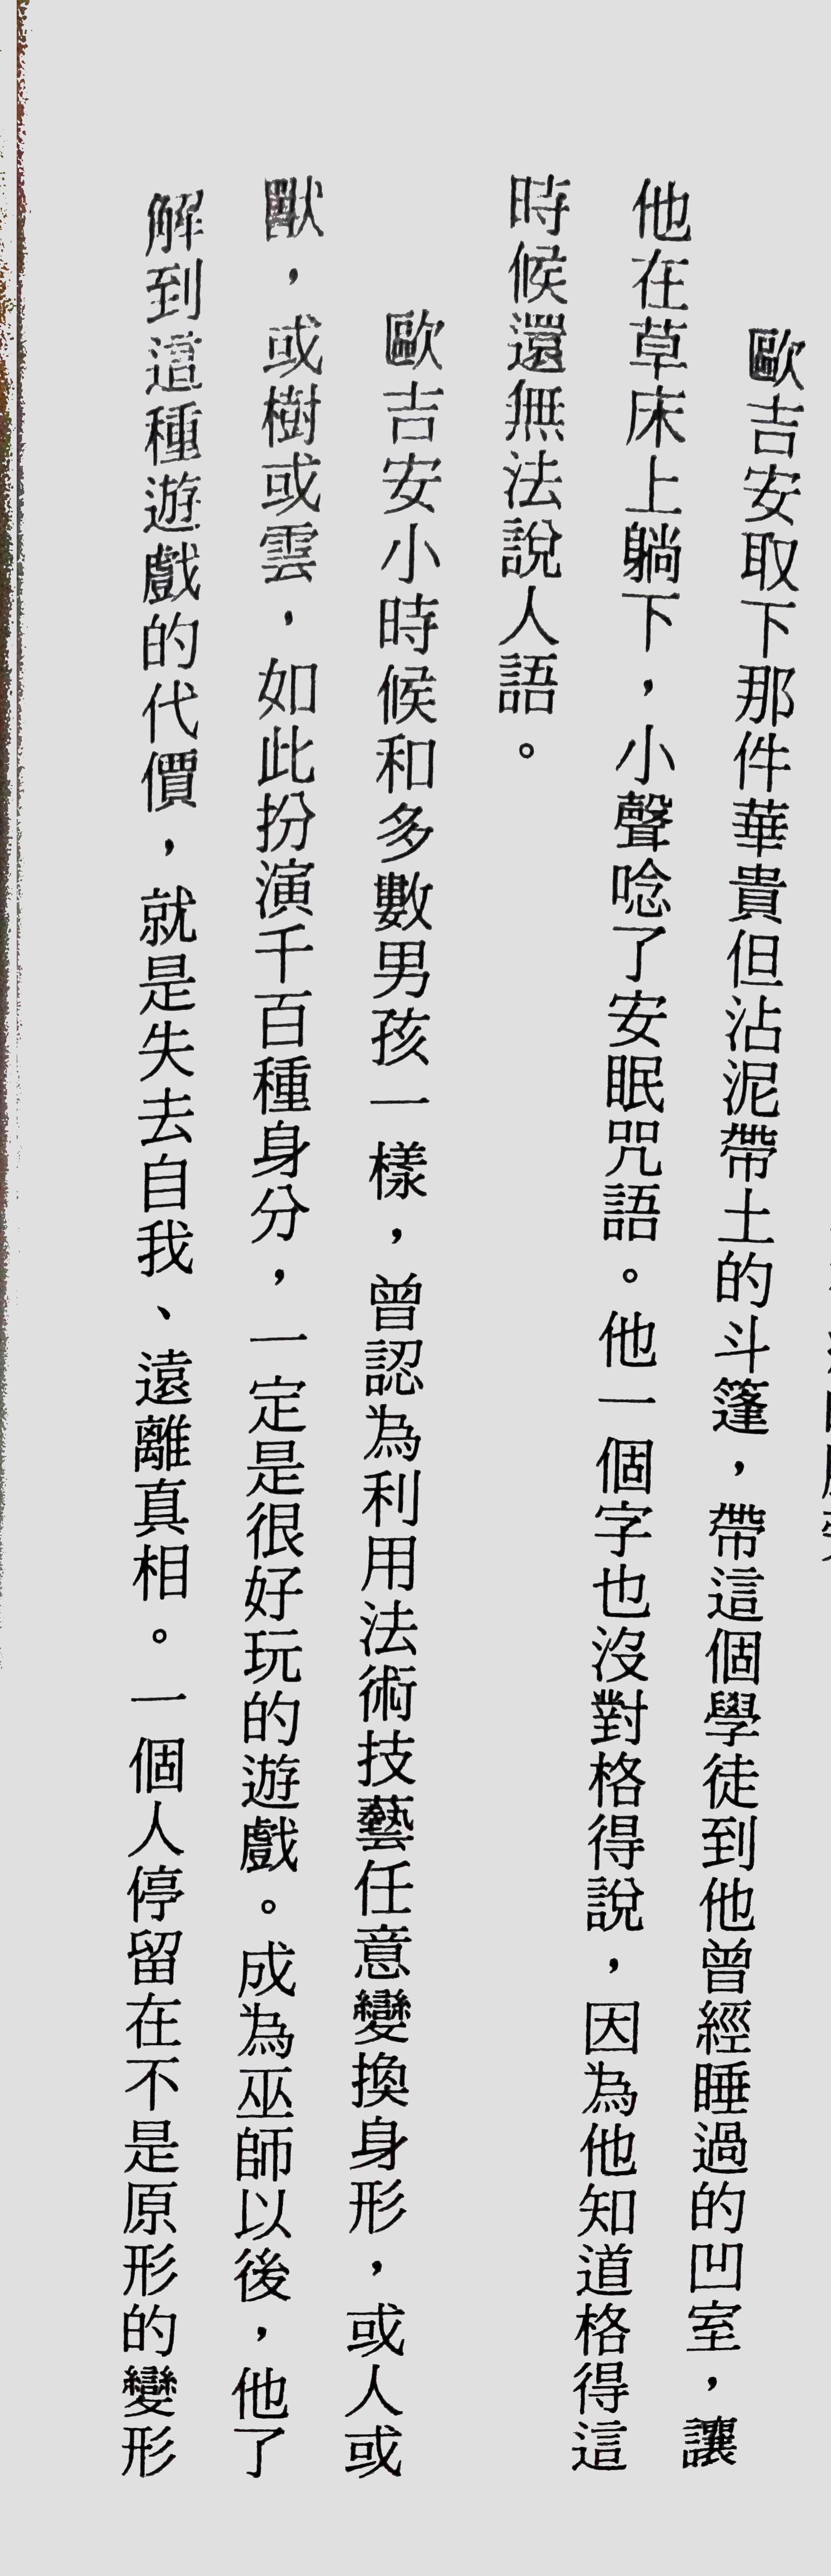 歐吉安取下那件華貴但沾泥帶土的斗篷，帶這個學徒到他曾經睡過的凹室，讓
他在草床上躺下，小聲唸了安眠咒語。他一個字也沒對格得說，因為他知道格得這
時候還無法說人語。
歐吉安小時候和多數男孩一樣，曾認為利用法術技藝任意變換身形，或人或
獸，或樹或雲，如此扮演千百種身分，一定是很好玩的遊戲。成為巫師以後，他了
解到這種遊戲的代價，就是失去自我、遠離真相。一個人停留在不是原形的變形